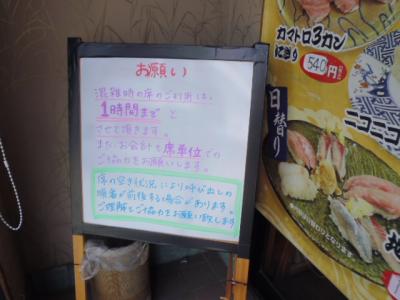 お願い
混雑時の席のご利用は、
1時間まで と
させて頂きます。
また、お会計も席単位での
ご協力をお願いします。
席の空き状況により呼び出しの
順番が前後する場合があります。
ご理解とご協力をお願い致します
カマトロ3カン
に盛り
540円
日替り
ニコニコ